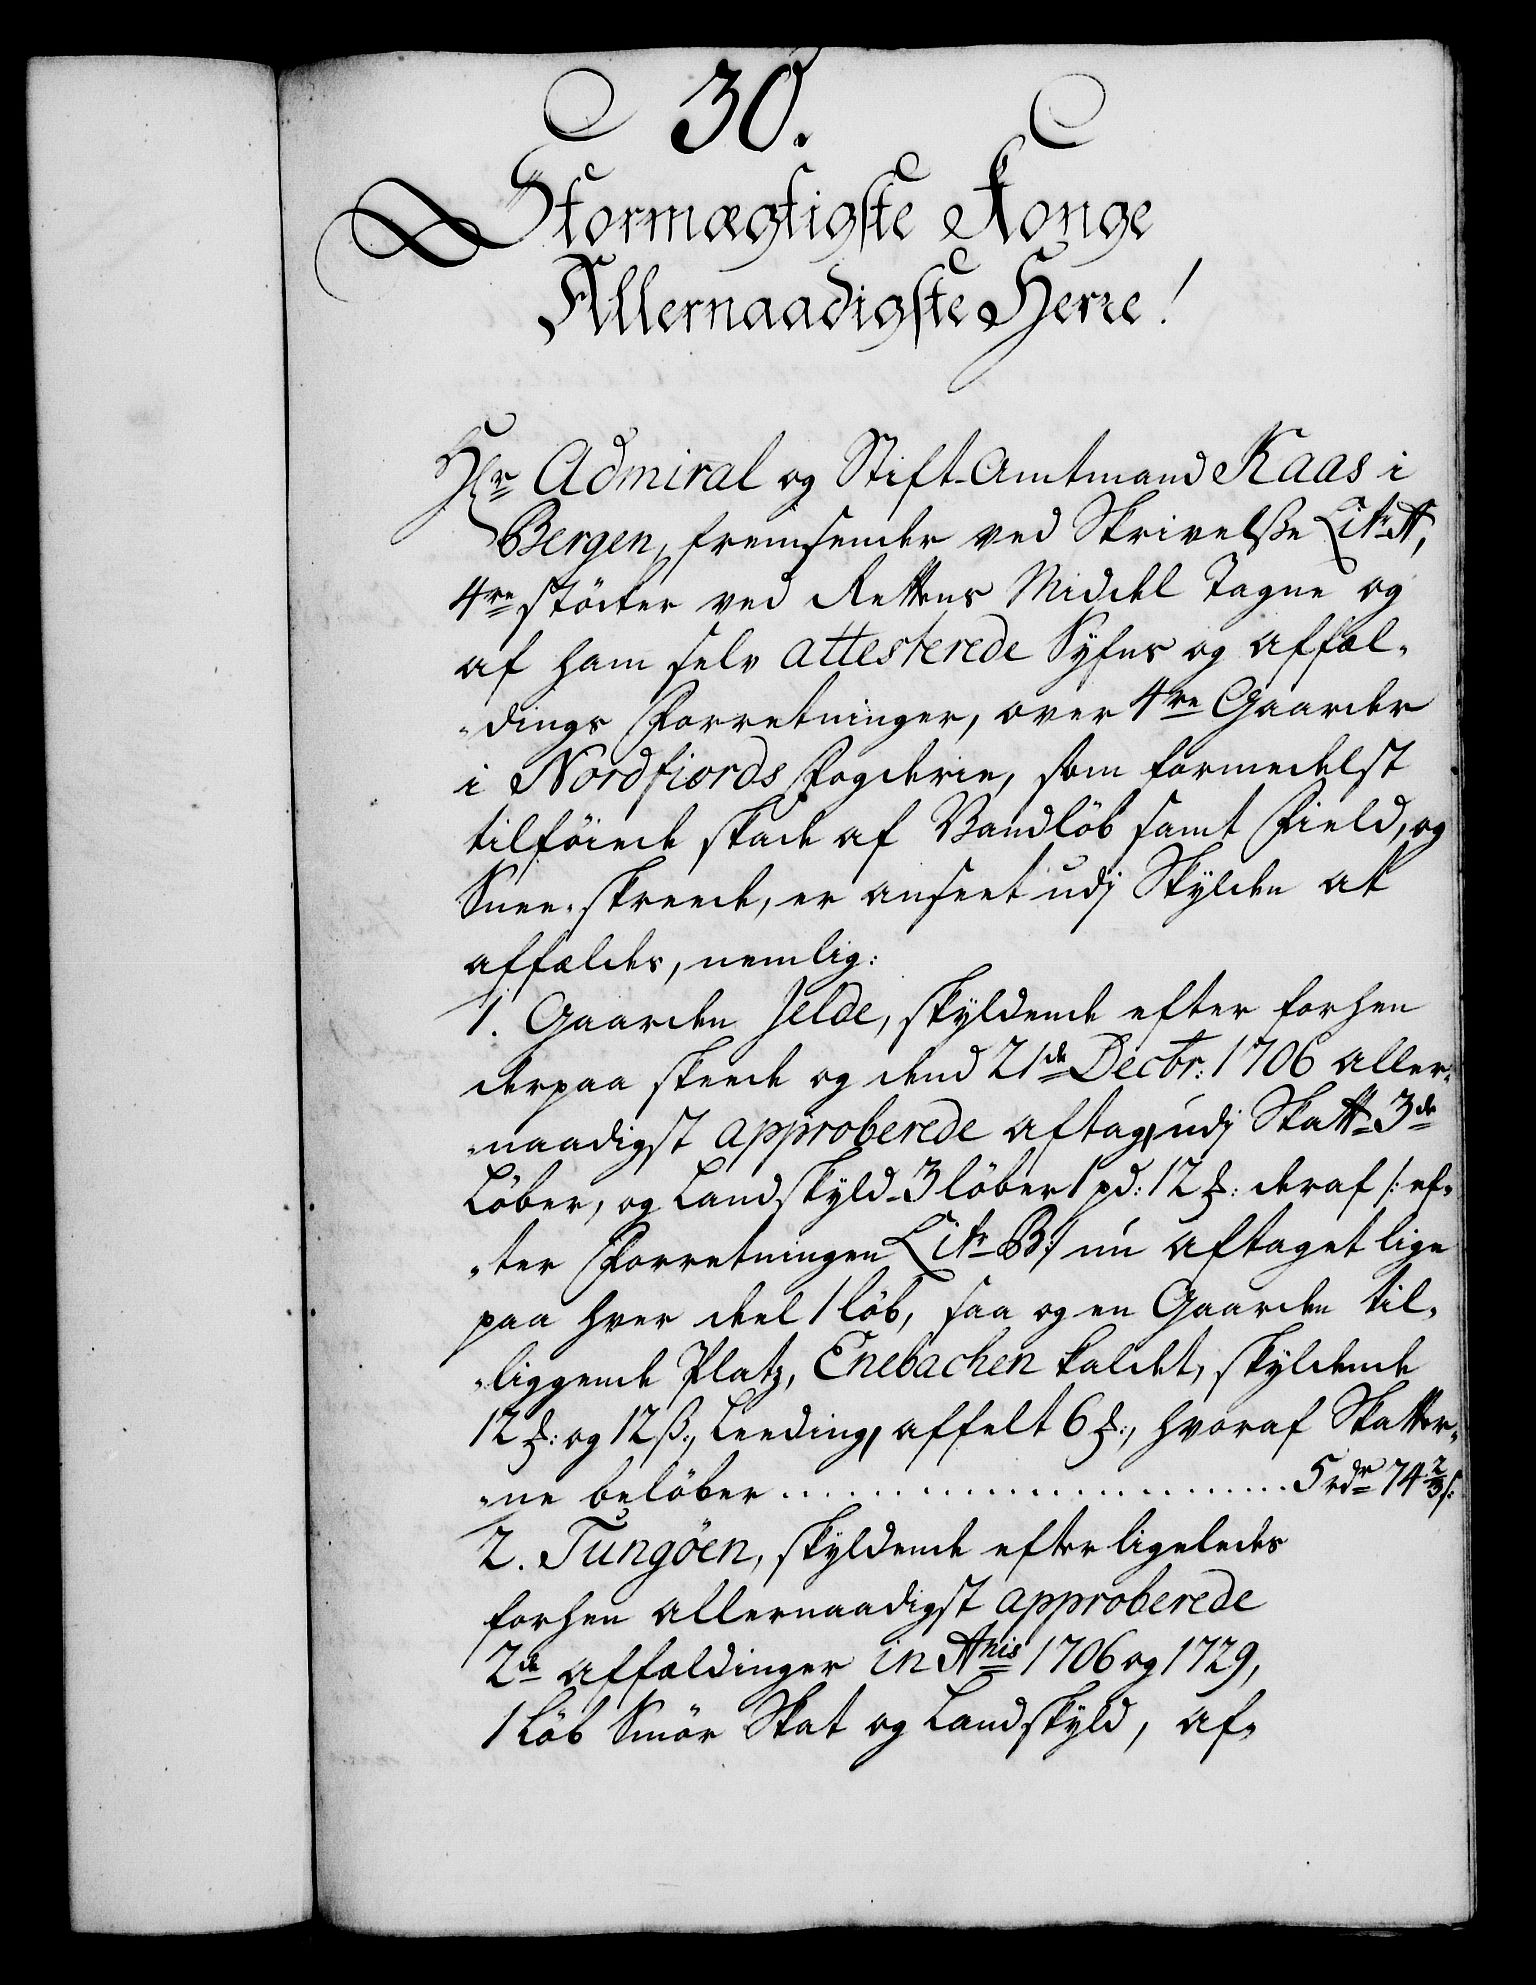 30.
Stormægtigste Konge
Allernaadigste Herre!
Hr Admiral og Stift-Amtmand Kaas i
Bergen, fremsender ved Skrivelße Litr A,
4re støcker ved Rettens Middel Tagne og
af ham selv attesterede Syfns og affæl-
-dings Forretninger, over 4re Gaarder
i Nordfiords Fogderie, som formedelst
tilføiede skade af Vandløb samt Field, og
Snee-skreede, er anseet udj Skylden at
affældes, nemlig:
1. Gaarden Jelde, skyldende efter forhen
derpaa skeede og dend 21de Decbr: 1706 aller-
-naadigst approberede aftag, udj Skatt 3de
Løber, og Landskyld 3 løber 1 pd: 12 ℔: deraf /: ef-
-ter Forretningen Litr B :/ nu aftaget lige
paa hver deel 1 løb, saa og en Gaarden til-
-liggende Platz, Enebachen kaldet, skyldende
12 ℔: og 12 ß:, Leeding, affelt 6 ℔:, hvoraf Skatter-
-ne beløber ........................ 5 rdr 74 2/3 s:
2. Tungøen, skyldende efter ligeledes
forhen allernaadigst approberede
2de affældinger in Anis 1706 og 1729,
1 Løb Smør Skat og Landskyld, af-